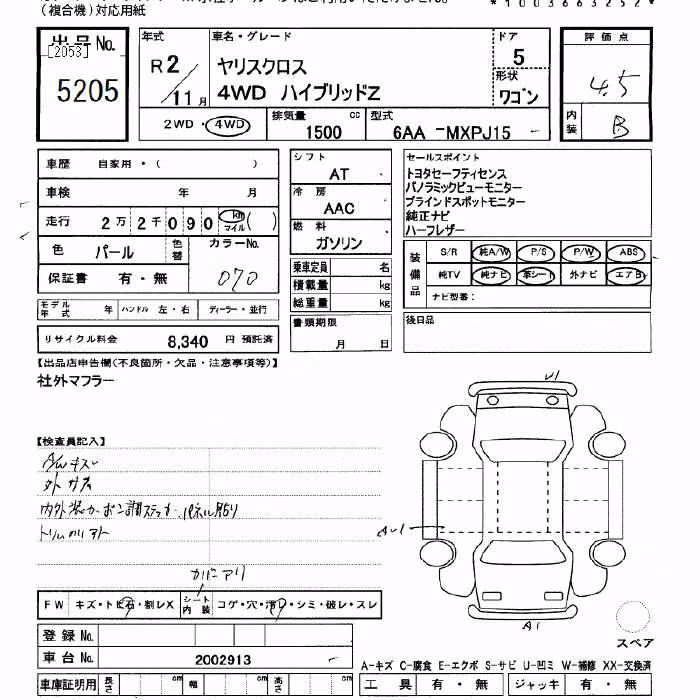 (複合機)対応用紙
*1003663252*
出品No.
[2053]
5205
年式
R2/11月
車名・グレード
ヤリスクロス
4WD ハイブリッドZ
ドア
5
形状
ワゴン
評価点
4.5
内装
B
2WD・4WD
排気量
1500 cc
型式
6AA -MXPJ15 -
車歴 自家用・( )
車検 年 月
走行 2万2千090 km マイル( )
色 パール 色替
カラーNo.
070
保証書 有・無
モデル年式 年 ハンドル 左・右 ディーラー・並行
リサイクル料金 8,340 円 預託済
シフト
AT
冷房
AAC
燃料
ガソリン
乗車定員 名
積載量 kg
総重量 kg
書類期限
月 日
セールスポイント
トヨタセーフティセンス
パノラミックビューモニター
ブラインドスポットモニター
純正ナビ
ハーフレザー
装備品
S/R 純A/W P/S P/W ABS
純TV 純ナビ 革シート 外ナビ エアB
ナビ型番:
後日品
【出品店申告欄(不良箇所・欠品・注意事項等)】
社外マフラー
【検査員記入】
A/Wキズ
外サス
内外装カーボン調ステッカー、パネル貼り
カバーアリ
FW キズ・トビ石・割レX
シート内装 コゲ・穴・汚レ・シミ・破レ・スレ
登録No.
車台No. 2002913
車庫証明用 長さ cm 幅 cm 高さ cm
U1
AU1
A1
スペア
A-キズ C-腐食 E-エクボ S-サビ U-凹ミ W-補修 XX-交換済
工具 有・無 ジャッキ 有・無